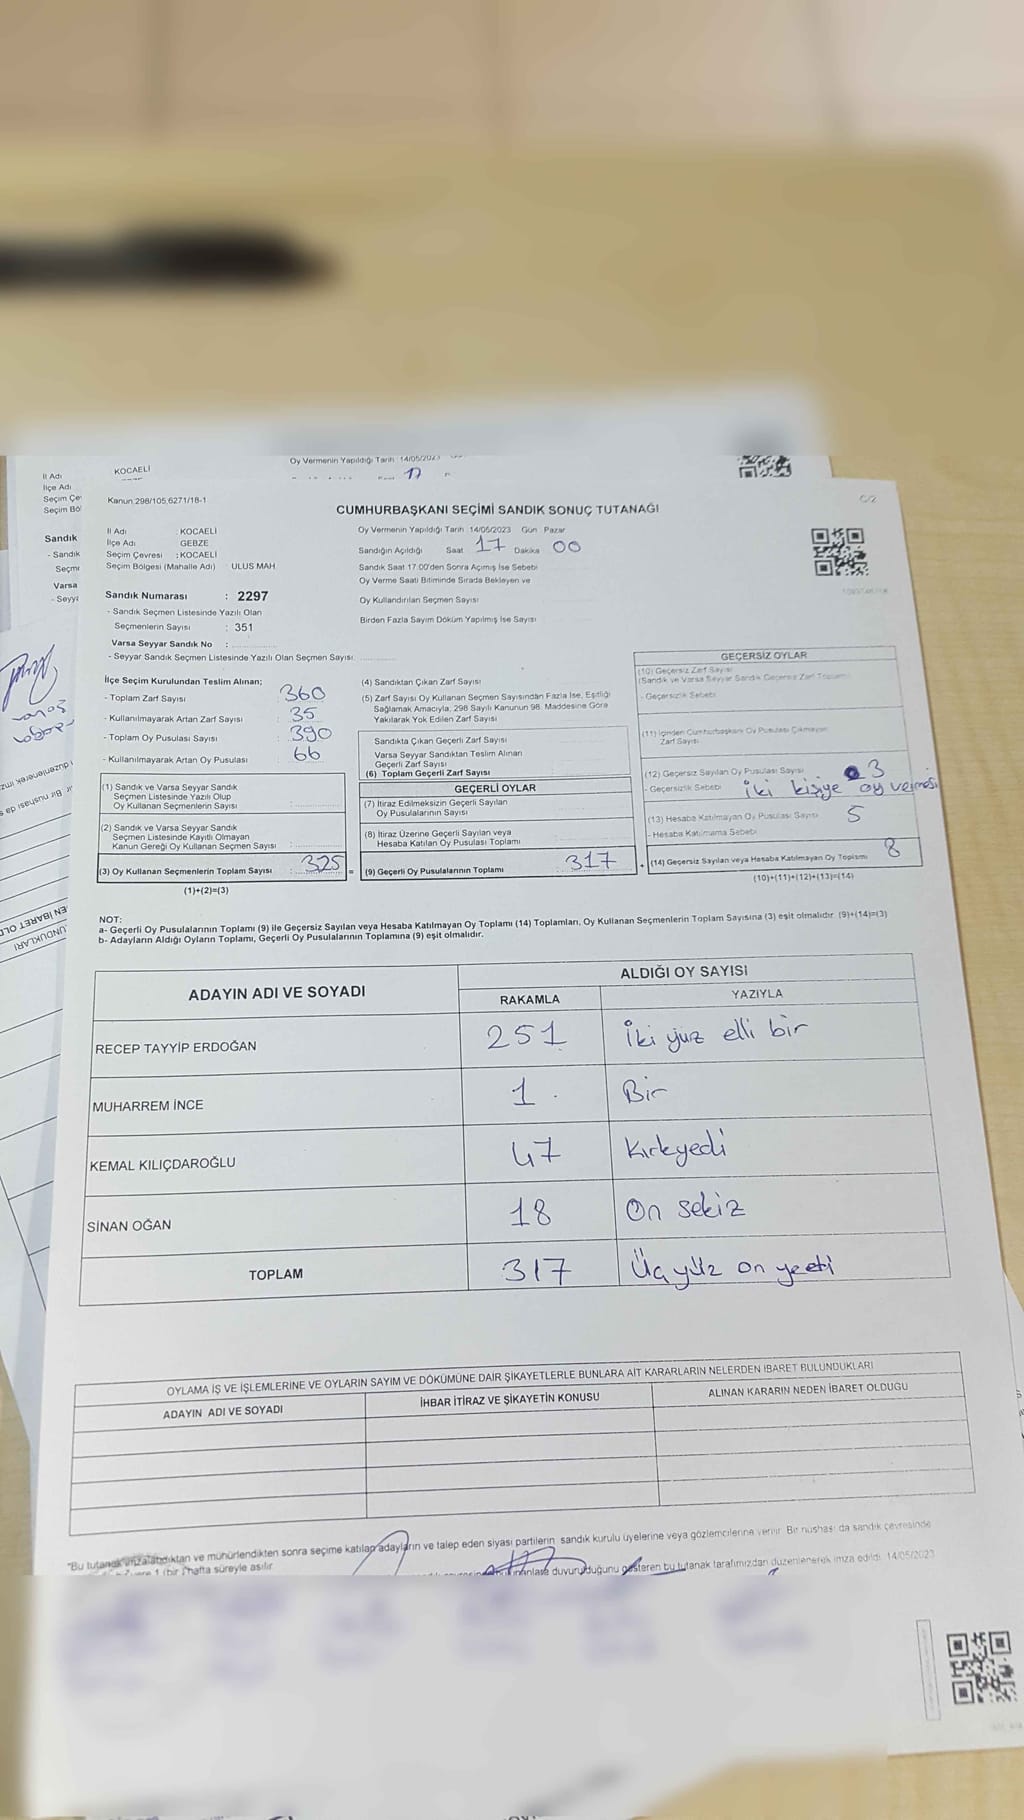 Oy Vermenin Yapıldığı Tarih 14/05/2023
İl Adı KOCAELİ
17
İlçe Adı
Seçim Çe
Seçim Böl
Sandık
- Sandık
Seçme
Varsa
- Seyya
Kanun 298/105,6271/18-1
C/2
CUMHURBAŞKANI SEÇİMİ SANDIK SONUÇ TUTANAĞI
İl Adı : KOCAELİ
İlçe Adı : GEBZE
Seçim Çevresi : KOCAELİ
Seçim Bölgesi (Mahalle Adı) : ULUS MAH.
Sandık Numarası : 2297
- Sandık Seçmen Listesinde Yazılı Olan
Seçmenlerin Sayısı : 351
Varsa Seyyar Sandık No :
- Seyyar Sandık Seçmen Listesinde Yazılı Olan Seçmen Sayısı:
Oy Vermenin Yapıldığı Tarih 14/05/2023 Gün Pazar
Sandığın Açıldığı Saat 17 Dakika 00
Sandık Saat 17.00'den Sonra Açımış İse Sebebi
Oy Verme Saati Bitiminde Sırada Bekleyen ve
Oy Kullandırılan Seçmen Sayısı
Birden Fazla Sayım Döküm Yapılmış İse Sayısı
İlçe Seçim Kurulundan Teslim Alınan;
- Toplam Zarf Sayısı : 360
- Kullanılmayarak Artan Zarf Sayısı : 35
- Toplam Oy Pusulası Sayısı : 390
- Kullanılmayarak Artan Oy Pusulası : 66
(1) Sandık ve Varsa Seyyar Sandık
Seçmen Listesinde Yazılı Olup
Oy Kullanan Seçmenlerin Sayısı :
(2) Sandık ve Varsa Seyyar Sandık
Seçmen Listesinde Kayıtlı Olmayan
Kanun Gereği Oy Kullanan Seçmen Sayısı :
(3) Oy Kullanan Seçmenlerin Toplam Sayısı : 325 =
(1)+(2)=(3)
(4) Sandıktan Çıkan Zarf Sayısı
(5) Zarf Sayısı Oy Kullanan Seçmen Sayısından Fazla İse, Eşitliği
Sağlamak Amacıyla, 298 Sayılı Kanunun 98. Maddesine Göre
Yakılarak Yok Edilen Zarf Sayısı
Sandıkta Çıkan Geçerli Zarf Sayısı
Varsa Seyyar Sandıktan Teslim Alınan
Geçerli Zarf Sayısı
(6) Toplam Geçerli Zarf Sayısı
GEÇERLİ OYLAR
(7) İtiraz Edilmeksizin Geçerli Sayılan
Oy Pusulalarının Sayısı
(8) İtiraz Üzerine Geçerli Sayılan veya
Hesaba Katılan Oy Pusulası Toplamı
(9) Geçerli Oy Pusulalarının Toplamı 317 +
GEÇERSİZ OYLAR
(10) Geçersiz Zarf Sayısı
(Sandık ve Varsa Seyyar Sandık Geçersiz Zarf Toplamı)
- Geçersizlik Sebebi
(11) İçinden Cumhurbaşkanı Oy Pusulası Çıkmayan
Zarf Sayısı
(12) Geçersiz Sayılan Oy Pusulası Sayısı 3
- Geçersizlik Sebebi iki kişiye oy vermesi
(13) Hesaba Katılmayan Oy Pusulası Sayısı 5
- Hesaba Katılmama Sebebi
(14) Geçersiz Sayılan veya Hesaba Katılmayan Oy Toplamı 8
(10)+(11)+(12)+(13)=(14)
NOT:
a- Geçerli Oy Pusulalarının Toplamı (9) ile Geçersiz Sayılan veya Hesaba Katılmayan Oy Toplamı (14) Toplamları, Oy Kullanan Seçmenlerin Toplam Sayısına (3) eşit olmalıdır. (9)+(14)=(3)
b- Adayların Aldığı Oyların Toplamı, Geçerli Oy Pusulalarının Toplamına (9) eşit olmalıdır.
ADAYIN ADI VE SOYADI
ALDIĞI OY SAYISI
RAKAMLA YAZIYLA
RECEP TAYYİP ERDOĞAN 251 İki yüz elli bir
MUHARREM İNCE 1 Bir
KEMAL KILIÇDAROĞLU 47 Kırkyedi
SİNAN OĞAN 18 On sekiz
TOPLAM 317 Üçyüz on yedi
OYLAMA İŞ VE İŞLEMLERİNE VE OYLARIN SAYIM VE DÖKÜMÜNE DAİR ŞİKAYETLERLE BUNLARA AİT KARARLARIN NELERDEN İBARET BULUNDUKLARI
ADAYIN ADI VE SOYADI İHBAR İTİRAZ VE ŞİKAYETİN KONUSU ALINAN KARARIN NEDEN İBARET OLDUĞU
"Bu tutanak imzalandıktan ve mühürlendikten sonra seçime katılan adayların ve talep eden siyasi partilerin sandık kurulu üyelerine veya gözlemcilerine verilir. Bir nüshası da sandık çevresinde
1 (bir) hafta süreyle asılır.
duyurulduğunu gösteren bu tutanak tarafımızdan düzenlenerek imza edildi. 14/05/2023